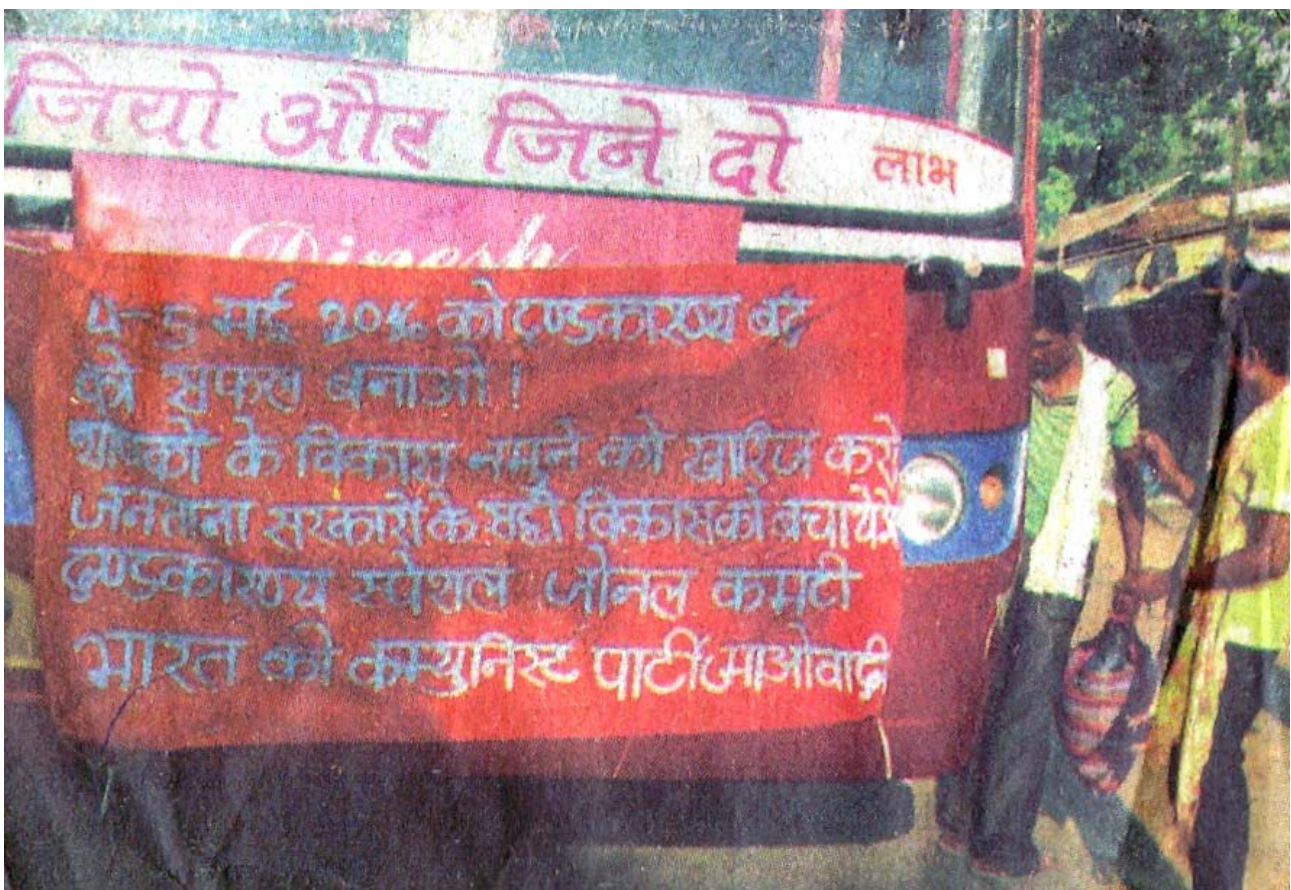 जियो और जिने दो लाभ
Dinesh
को दण्डकारण्य बंद
को सफल बनाओ !
के विकास नमुने को खारिज करो
जनताना सरकारों के विकास को
दण्डकारण्य स्पेशल जोनल कमटी
भारत की कम्युनिस्ट पार्टी (माओवादी)